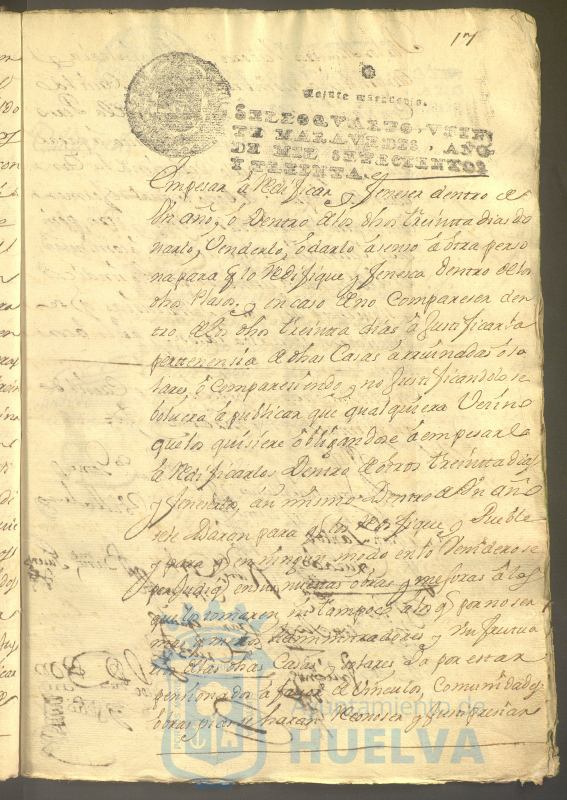 17
Veinte maravedis.
SELLO QVARTO, VEIN-
TE MARAVEDIS, AÑO
DE MIL SETECIENTOS
Y TREINTA.
Empesar â Redificar y feneser dentro de
Un año, ô Dentro de los dhos treinta dias do
narlo, Venderlo, ô darlo â senso â otra perso
na para q lo Redifique y fenesca dentro de los
dhos Plasos, y en caso de no Compareser den
tro de los dhos treinta dias â Justificar la
pertenensia de dhas Casas arruinadas ô so
lares, ô Compareciendo y no Justificandolo se
boluera â publicar que qualquiera Vecino
que los quisiere obligandose â empesarlo
â Redificarlos Dentro de otros treinta dias
y feneserlo, Dentro de Un año
se le Daran para q los Redifique y Pueble
y para q en ningun modo en lo Venidero se
perjudiq en sus nuevas obras y mejoras â los
que lo tomaren, ni tampoco a los q por no ser
mas q meros Administradores y
de las dhas Casas y solares o por estar
pensionados â favor de Vinculos, Comunidades
obras pias y
Ayuntamiento de
HUELVA